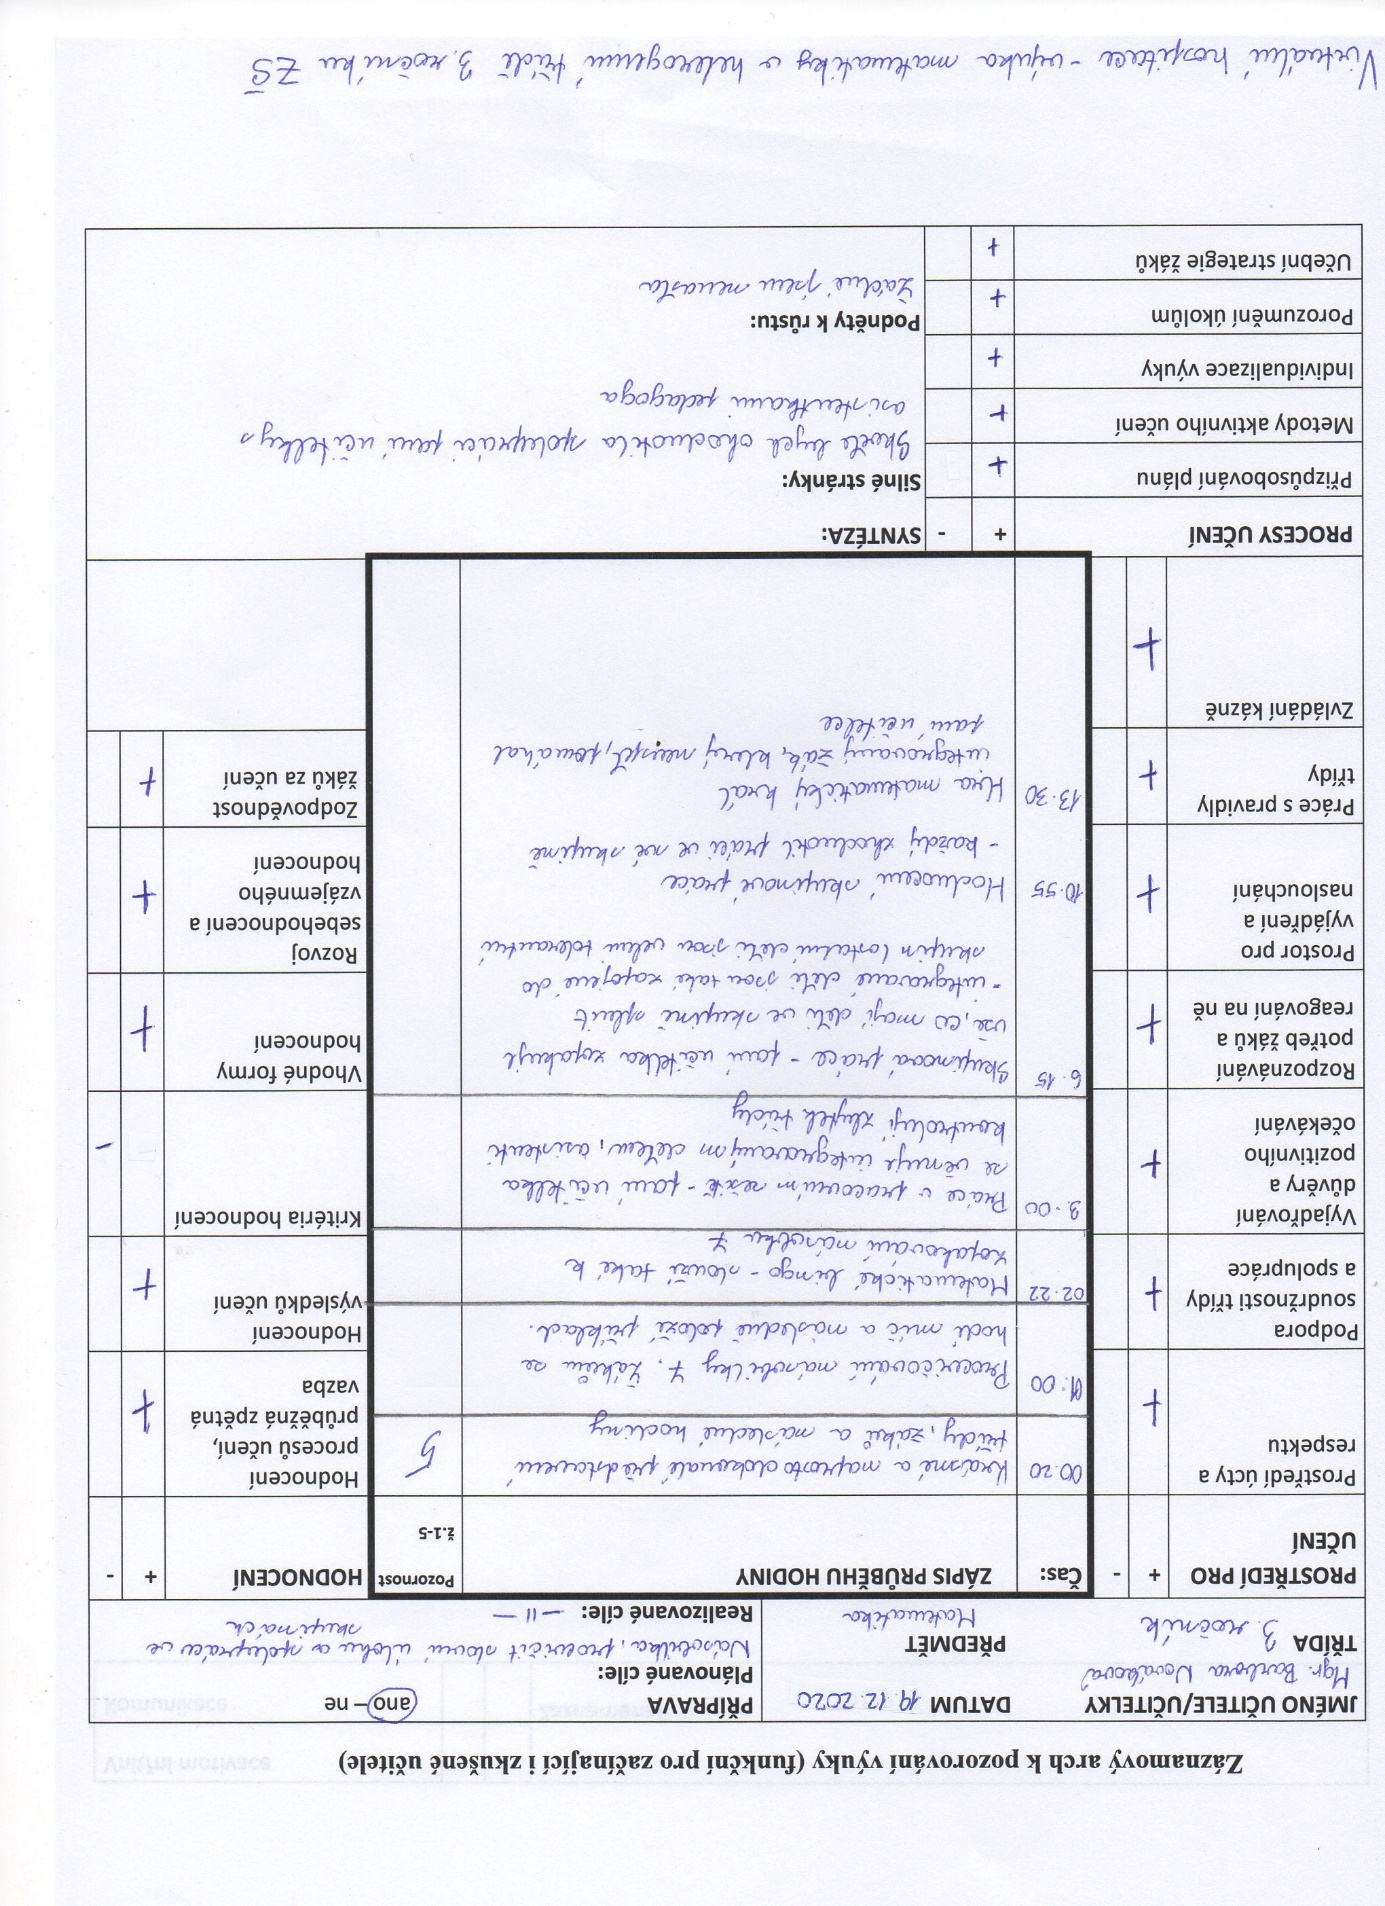 Záznamový arch k pozorování výuky (funkční pro začínající i zkušené učitele)
JMÉNO UČITELE/UČITELKY
Mgr. Barbora Nováková
TŘÍDA 3. ročník
DATUM 19. 12. 2020
PŘEDMĚT
Matematika
PŘÍPRAVA ano – ne
Plánované cíle:
Násobilka, procvičit slovní úlohu a spolupráci ve
skupinách
Realizované cíle: —11—
PROSTŘEDÍ PRO
UČENÍ
+ -
Prostředí úcty a
respektu
+
Podpora
soudržnosti třídy
a spolupráce
+
Vyjadřování
důvěry a
pozitivního
očekávání
+
Rozpoznávání
potřeb žáků a
reagování na ně
+
Prostor pro
vyjádření a
naslouchání
+
Práce s pravidly
třídy
+
Zvládání kázně
+
Čas: ZÁPIS PRŮBĚHU HODINY
Pozornost
ž.1-5
00:20 Krásné a naprosto dokonalé představení
třídy, žáků a následné hodiny
5
01:00 Procvičování násobilky 7. Žákům se
hodí míč a následně položí příklad.
02:22 Matematické bingo - slouží také k
zopakování násobku 7
3:00 Práce v pracovním sešitě - paní učitelka
se věnuje integrovaným dětem, asistenti
kontrolují zbytek třídy
6:15 Skupinová práce - paní učitelka zopakuje
vše, co mají děti ve skupině splnit
- integrované děti jsou také zapojené do
skupin (ostatní děti jsou velmi tolerantní
10:55 Hodnocení skupinové práce
- každý zhodnotil práci ve své skupině
13:30 Hra matematický král
integrovaný žák, který nesoutěží, pomáhal
paní učitelce
HODNOCENÍ + -
Hodnocení
procesů učení,
průběžná zpětná
vazba
+
Hodnocení
výsledků učení
+
Kritéria hodnocení
-
Vhodné formy
hodnocení
+
Rozvoj
sebehodnocení a
vzájemného
hodnocení
+
Zodpovědnost
žáků za učení
+
PROCESY UČENÍ + -
Přizpůsobování plánu +
Metody aktivního učení +
Individualizace výuky +
Porozumění úkolům +
Učební strategie žáků +
SYNTÉZA:
Silné stránky:
Skvěle bych ohodnotila spolupráci paní učitelky s
asistentkami pedagoga
Podněty k růstu:
Žádné jsem nenašla
Virtuální hospitace - výuka matematiky v heterogenní třídě 3. ročníku ZŠ